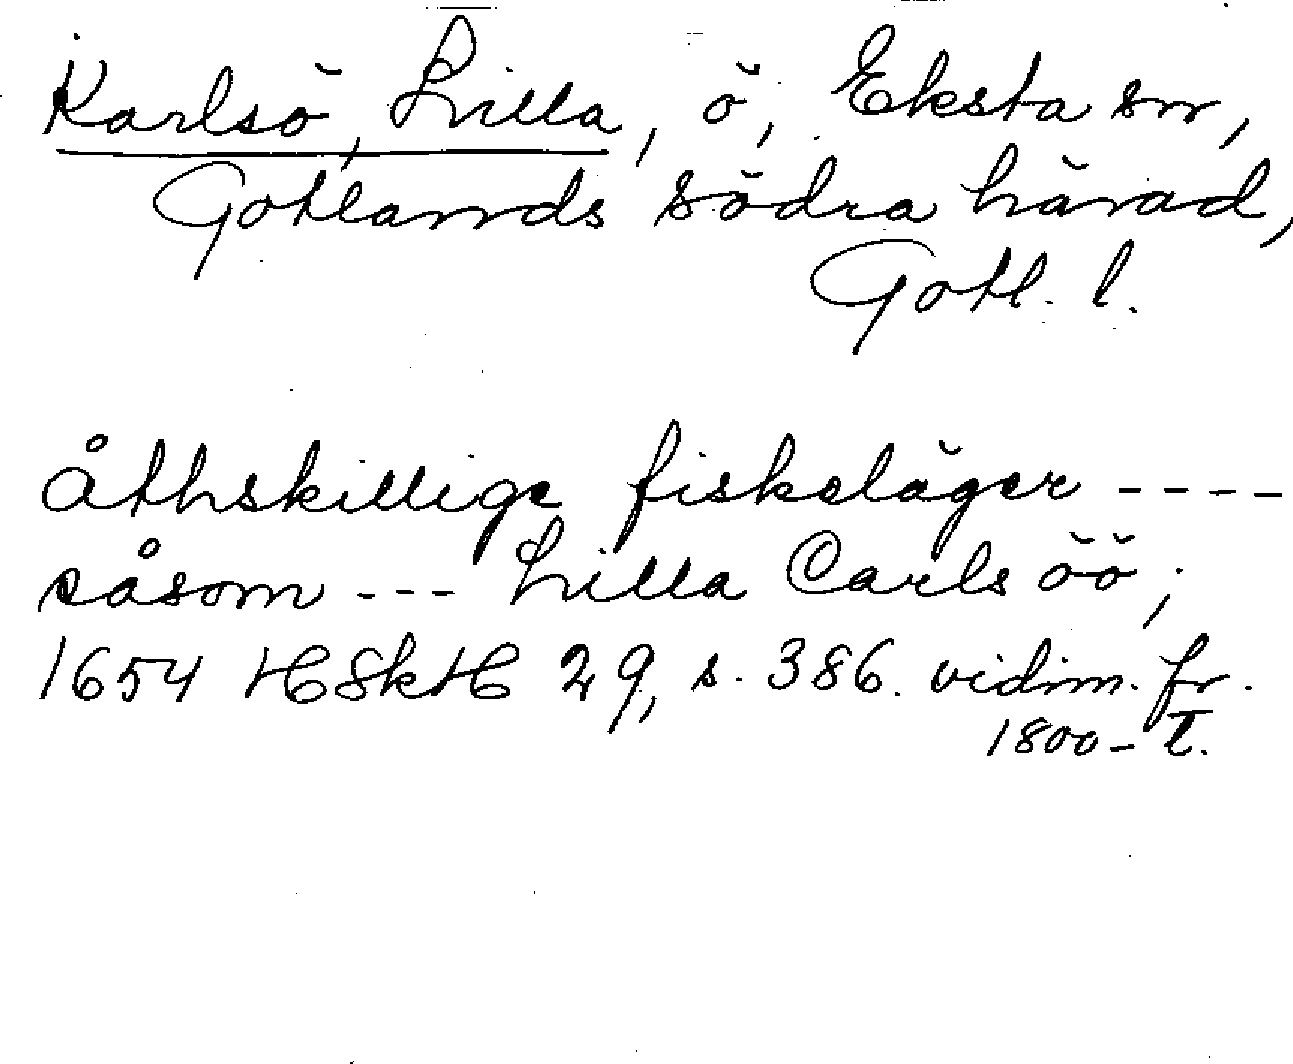 Karlsö, Lilla, ö, Eksta sn,
Gotlands södra härad,
Gotl. l.
Åthskillige fiskeläger ----
såsom --- Lilla Carls öö;
1654 HSkH 29, s. 386. vidim. fr.
1800-t.